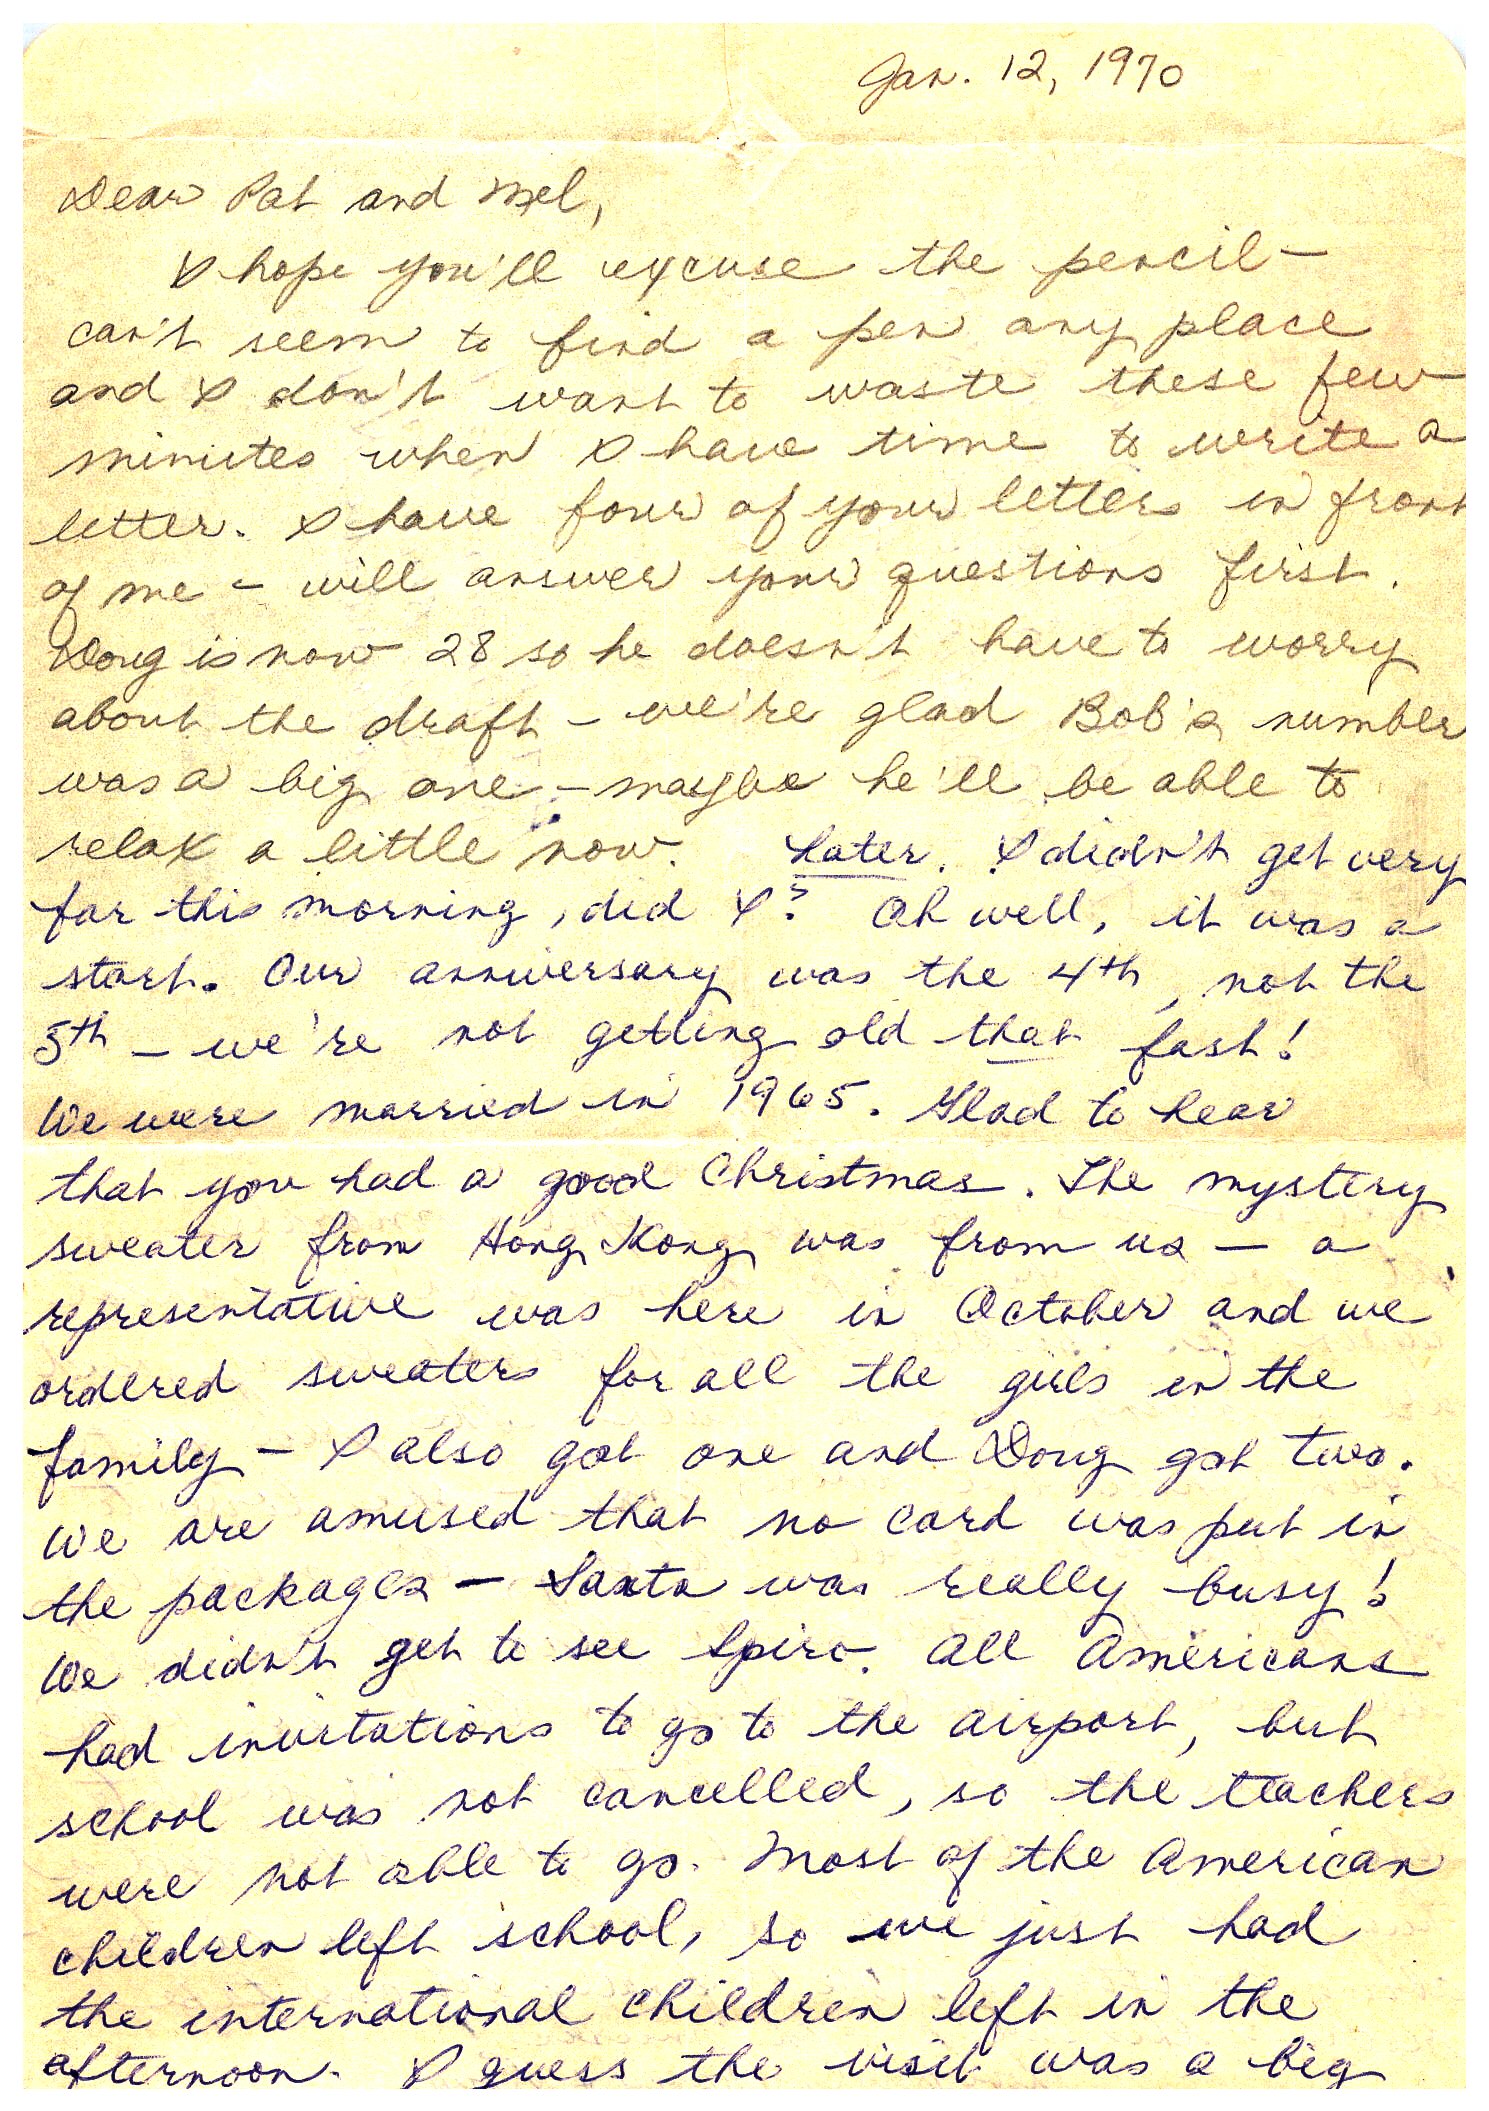 Jan. 12, 1970
Dear Pat and Mel,
I hope you'll excuse the pencil –
can't seem to find a pen any place
and I don't want to waste these few
minutes when I have time to write a
letter. I have four of your letters in front
of me – will answer your questions first.
Doug is now 28 so he doesn't have to worry
about the draft – we're glad Bob's number
was a big one – maybe he'll be able to
relax a little now. Later. I didn't get very
far this morning, did I? Oh well, it was a
start. Our anniversary was the 4th, not the
5th – we're not getting old that fast!
We were married in 1965. Glad to hear
that you had a good Christmas. The mystery
sweater from Hong Kong was from us – a
representative was here in October and we
ordered sweaters for all the girls in the
family – I also got one and Doug got two.
We are amused that no card was put in
the packages – Santa was really busy!
We didn't get to see Spiro. All Americans
had invitations to go to the airport, but
school was not cancelled, so the teachers
were not able to go. Most of the American
children left school, so we just had
the international children left in the
afternoon. I guess the visit was a big